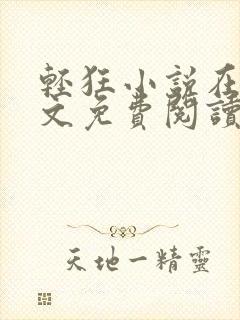 輕狂小說在
文免費閱讀
天地一精靈